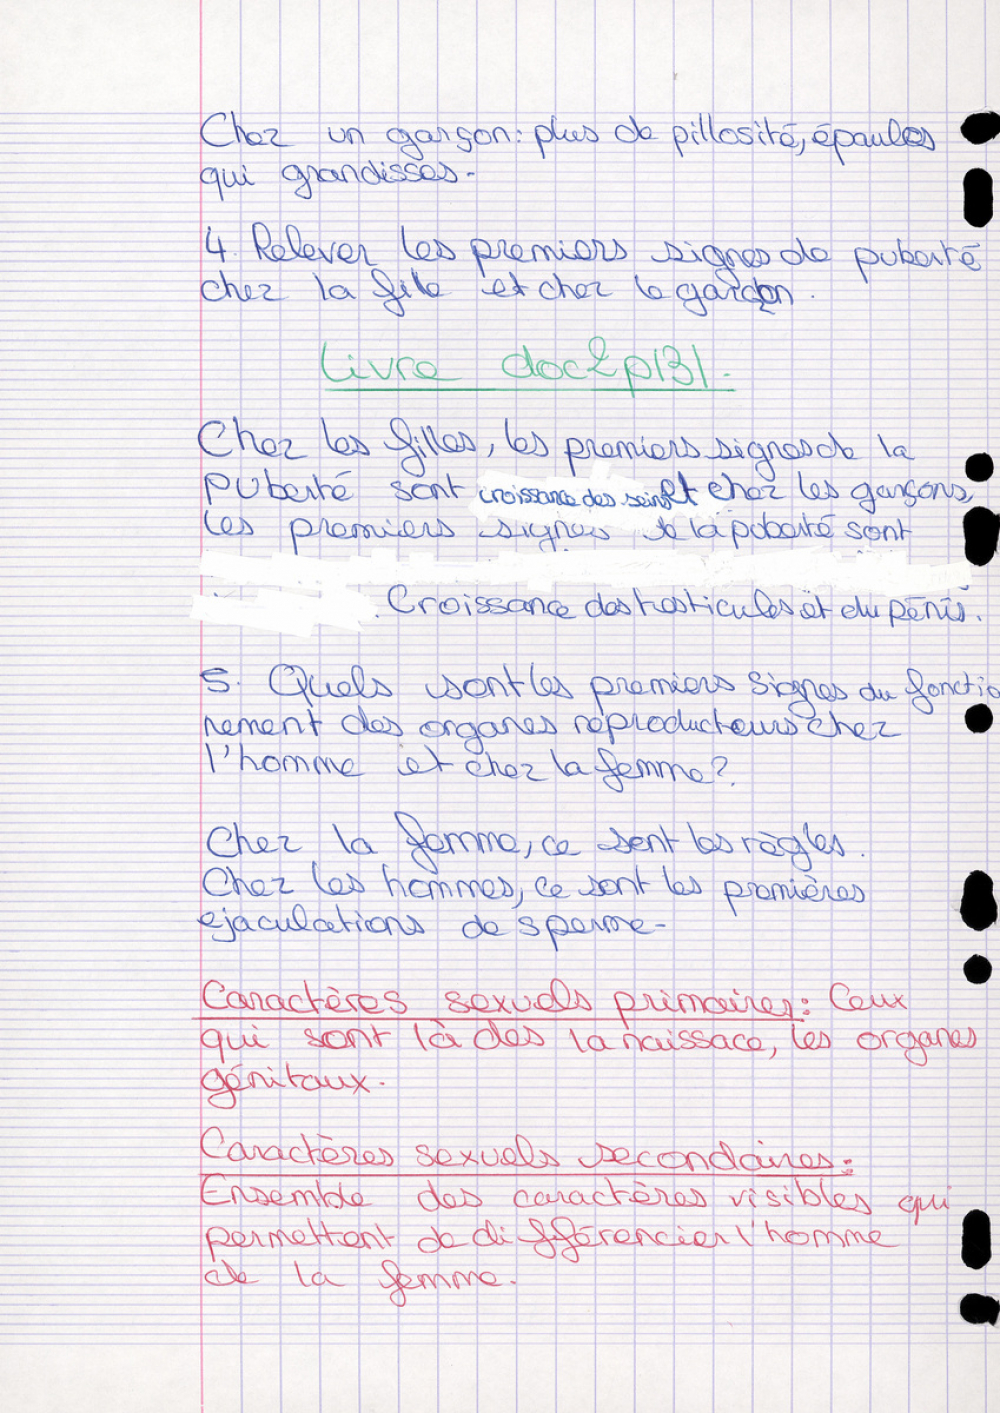 Chez un garçon: plus de pillosité, épaules
qui grandisses.
4. Relever les premiers signes de puberté
chez la fille et chez le garçon.
Livre doc2p131.
Chez les filles, les premiers signes de la
puberté sont croissance des seins et chez les garçons,
les premiers signes de la puberté sont
Croissance des testicules et du pénis.
5. Quels sont les premiers signes du fonctio
nement des organes reproducteurs chez
l'homme et chez la femme?
Chez la femme, ce sont les règles.
Chez les hommes, ce sont les premières
ejaculations de sperme.
Caractères sexuels primaires: Ceux
qui sont là des la naissace, les organes
génitaux.
Caractères sexuels secondaires:
Ensemble des caractères visibles qui
permettent de différencier l'homme
de la femme.